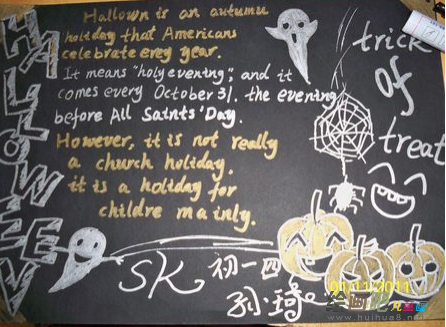 HALLOWEEN
Hallown is an autumn
holiday that Americans
celebrate erey year.
It means "holy evening", and it
comes every October 31. the evening
before All Saints' Day.
However, it is not really
a church holiday.
it is a holiday for
childre mainly.
trick
of
treat
SK 初一四
孙·琦
01/11/2011
绘画吧
www.huihua8.net